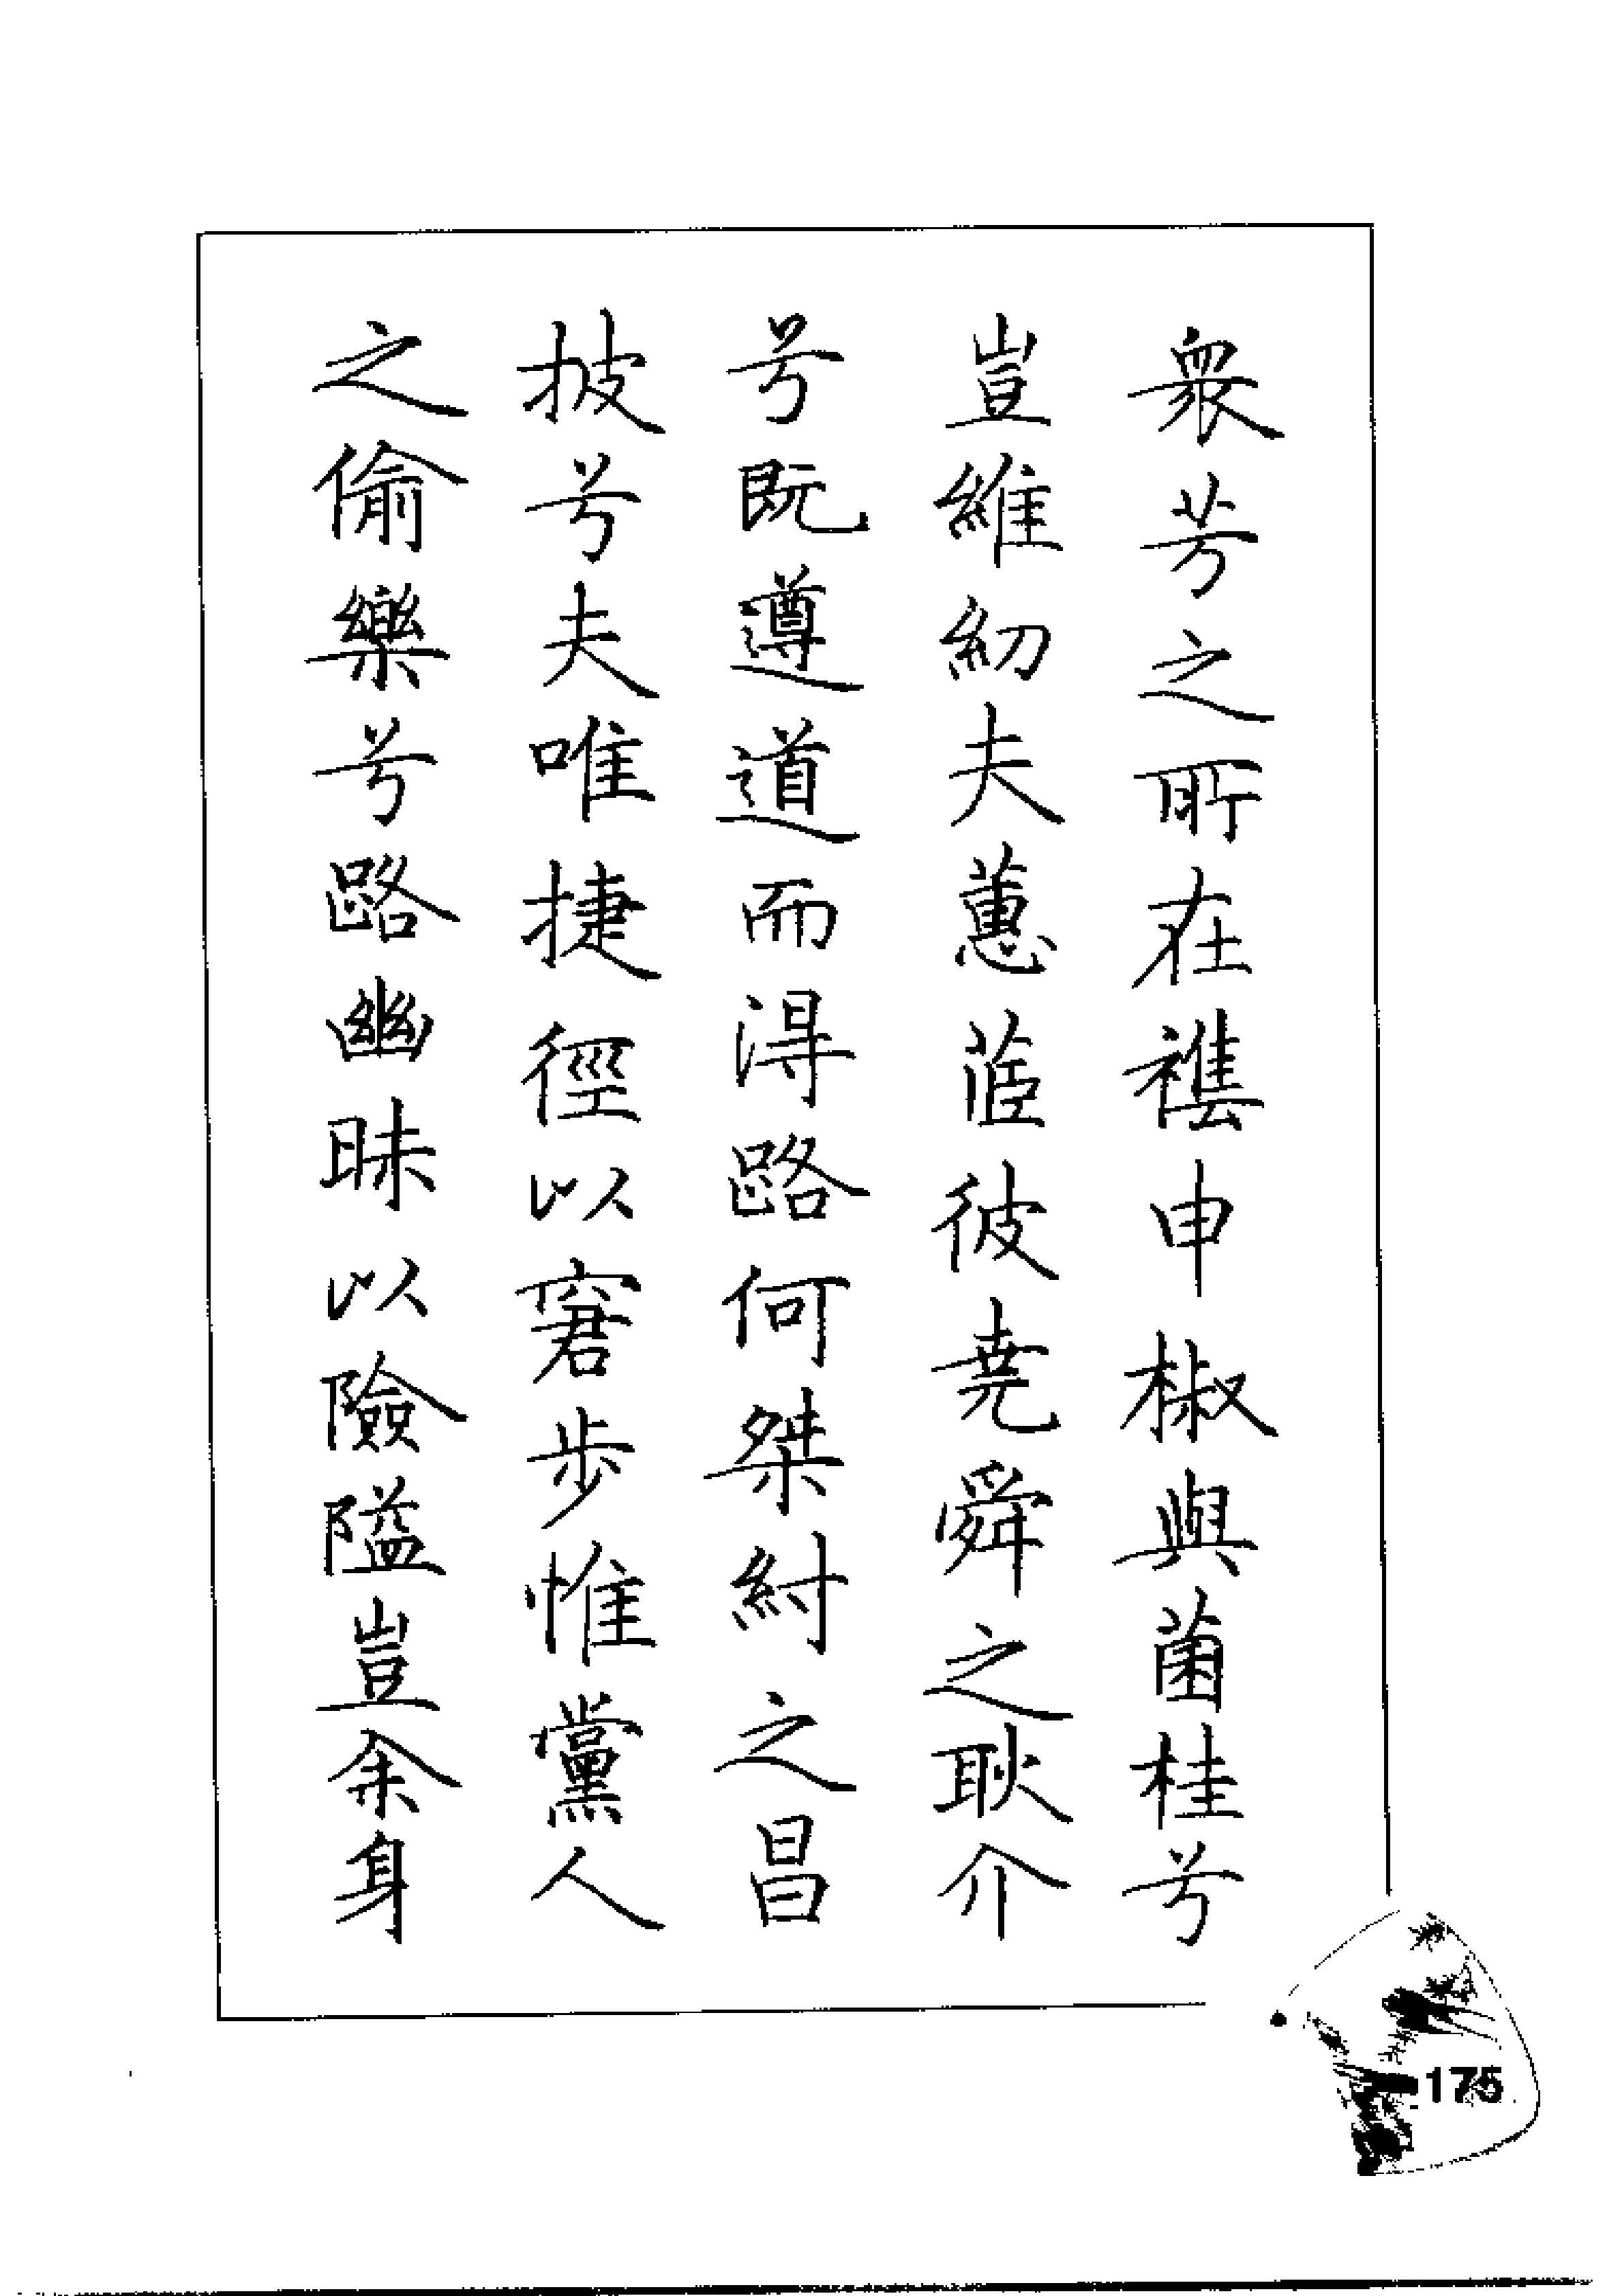 衆芳之所在襍申椒與菌桂兮
豈維紉夫蕙茝彼堯舜之耿介
兮既遵道而得路何桀紂之昌
披兮夫唯捷徑以窘步惟黨人
之偷樂兮路幽昧以險隘豈余身
175